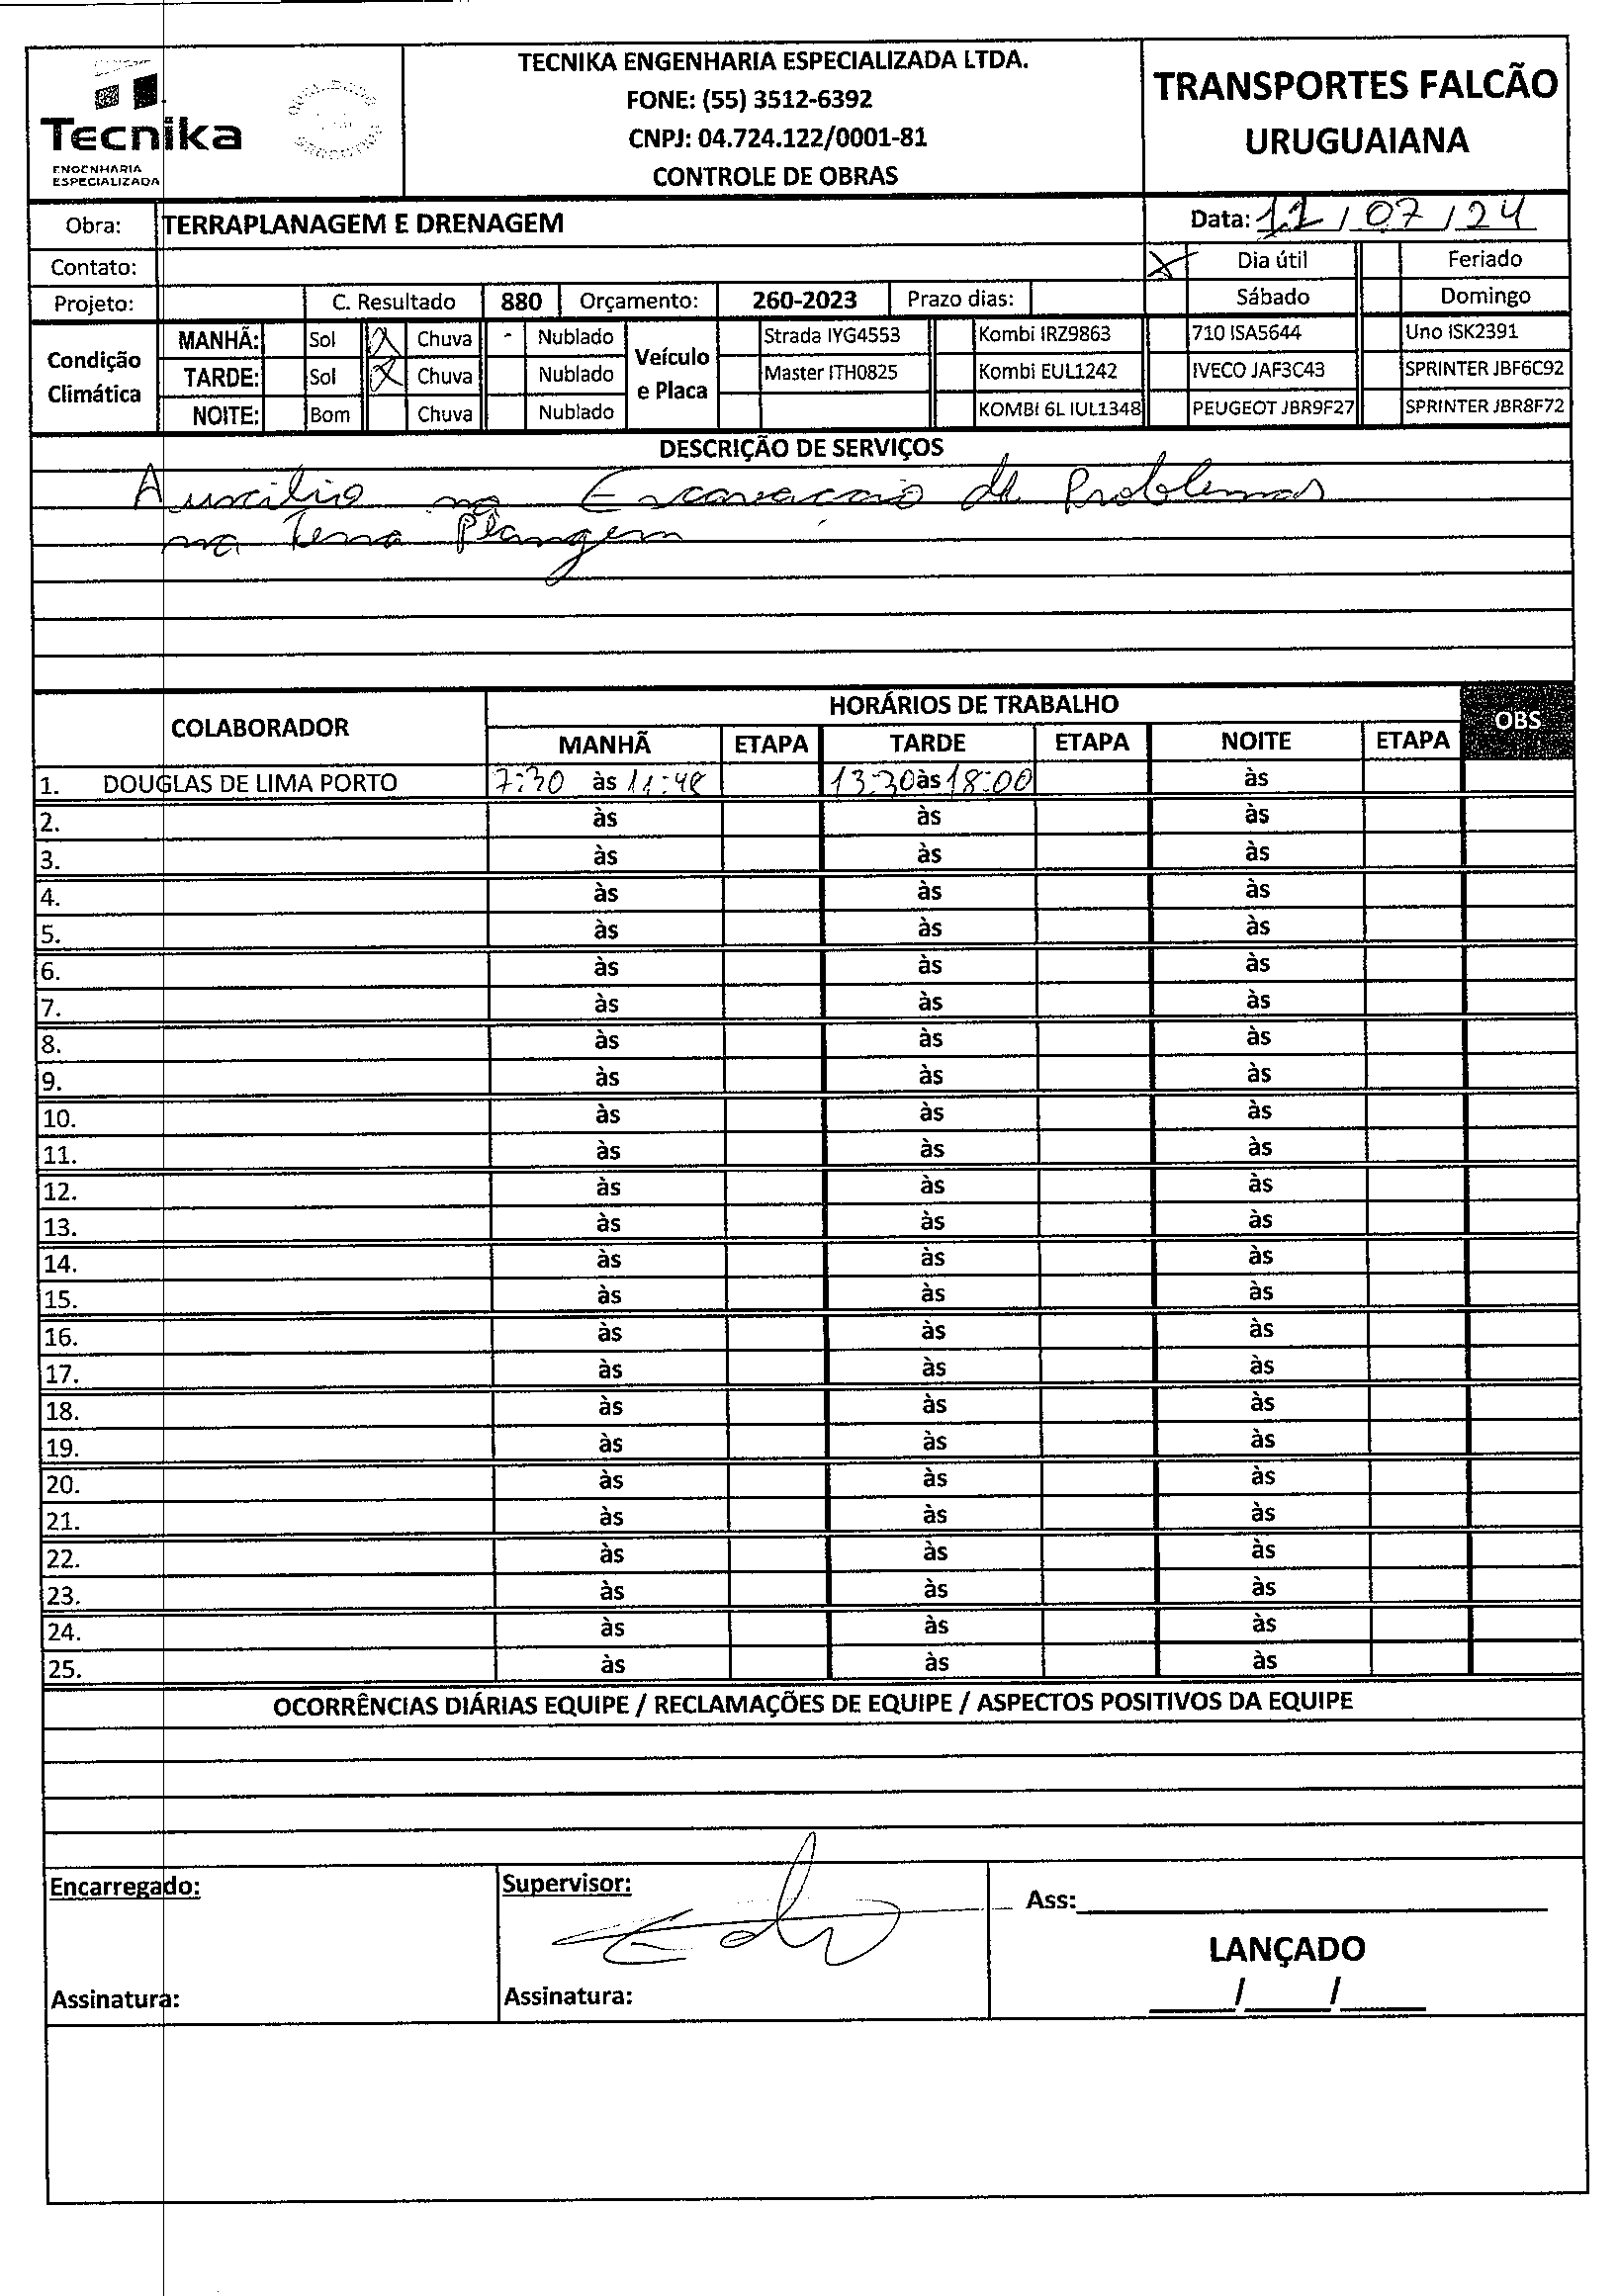 Tecnika
ENGENHARIA
ESPECIALIZADA
TECNIKA ENGENHARIA ESPECIALIZADA LTDA.
FONE: (55) 3512-6392
CNPJ: 04.724.122/0001-81
CONTROLE DE OBRAS
TRANSPORTES FALCÃO
URUGUAIANA
Obra: TERRAPLANAGEM E DRENAGEM Data: 11 / 07 / 24
Contato: X Dia útil Feriado
Projeto: C. Resultado 880 Orçamento: 260-2023 Prazo dias: Sábado Domingo
Condição Climática
MANHÃ: Sol X Chuva - Nublado
TARDE: Sol X Chuva Nublado
NOITE: Bom Chuva Nublado
Veículo e Placa
Strada IYG4553 Kombi IRZ9863 710 ISA5644 Uno ISK2391
Master ITH0825 Kombi EUL1242 IVECO JAF3C43 SPRINTER JBF6C92
KOMBI 6L IUL1348 PEUGEOT JBR9F27 SPRINTER JBR8F72
DESCRIÇÃO DE SERVIÇOS
Auxcilio na Escavacaio de Problemas
na Terra Plangem
COLABORADOR HORÁRIOS DE TRABALHO OBS
MANHÃ ETAPA TARDE ETAPA NOITE ETAPA
1. DOUGLAS DE LIMA PORTO 7:30 às 11:48 13:30 às 18:00 às
2. às às às
3. às às às
4. às às às
5. às às às
6. às às às
7. às às às
8. às às às
9. às às às
10. às às às
11. às às às
12. às às às
13. às às às
14. às às às
15. às às às
16. às às às
17. às às às
18. às às às
19. às às às
20. às às às
21. às às às
22. às às às
23. às às às
24. às às às
25. às às às
OCORRÊNCIAS DIÁRIAS EQUIPE / RECLAMAÇÕES DE EQUIPE / ASPECTOS POSITIVOS DA EQUIPE
Encarregado: Supervisor: Ass:
LANÇADO
Assinatura: Assinatura: / /